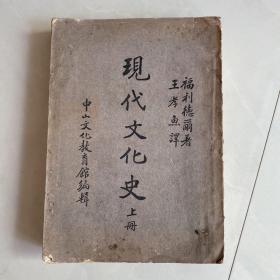 福利德爾著
王孝魚譯
現代文化史 上冊
中山文化教育館編輯